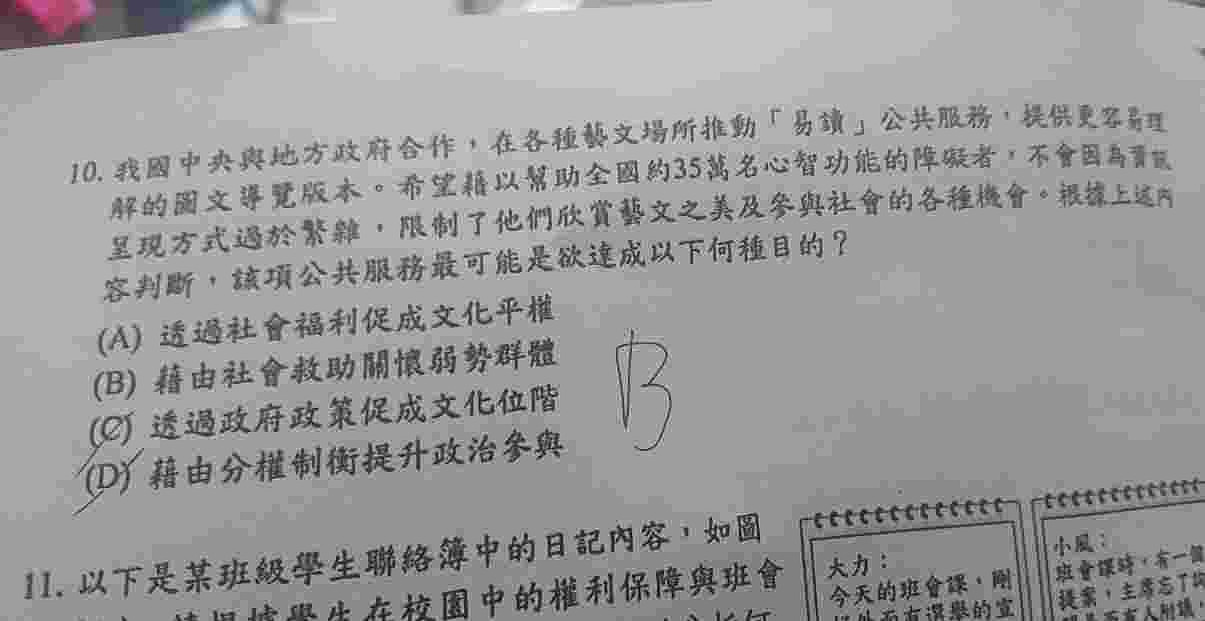 10. 我國中央與地方政府合作，在各種藝文場所推動「易讀」公共服務，提供更容易理
解的圖文導覽版本。希望藉以幫助全國約35萬名心智功能的障礙者，不會因為資訊
呈現方式過於繁雜，限制了他們欣賞藝文之美及參與社會的各種機會。根據上述內
容判斷，該項公共服務最可能是欲達成以下何種目的？
(A) 透過社會福利促成文化平權
(B) 藉由社會救助關懷弱勢群體
(C) 透過政府政策促成文化位階
(D) 藉由分權制衡提升政治參與
B
11. 以下是某班級學生聯絡簿中的日記內容，如圖
學生在校園中的權利保障與班會
大力：
今天的班會課，剛
有選舉的宣
小風：
班會課時，有一個
提案，主席忘了詢